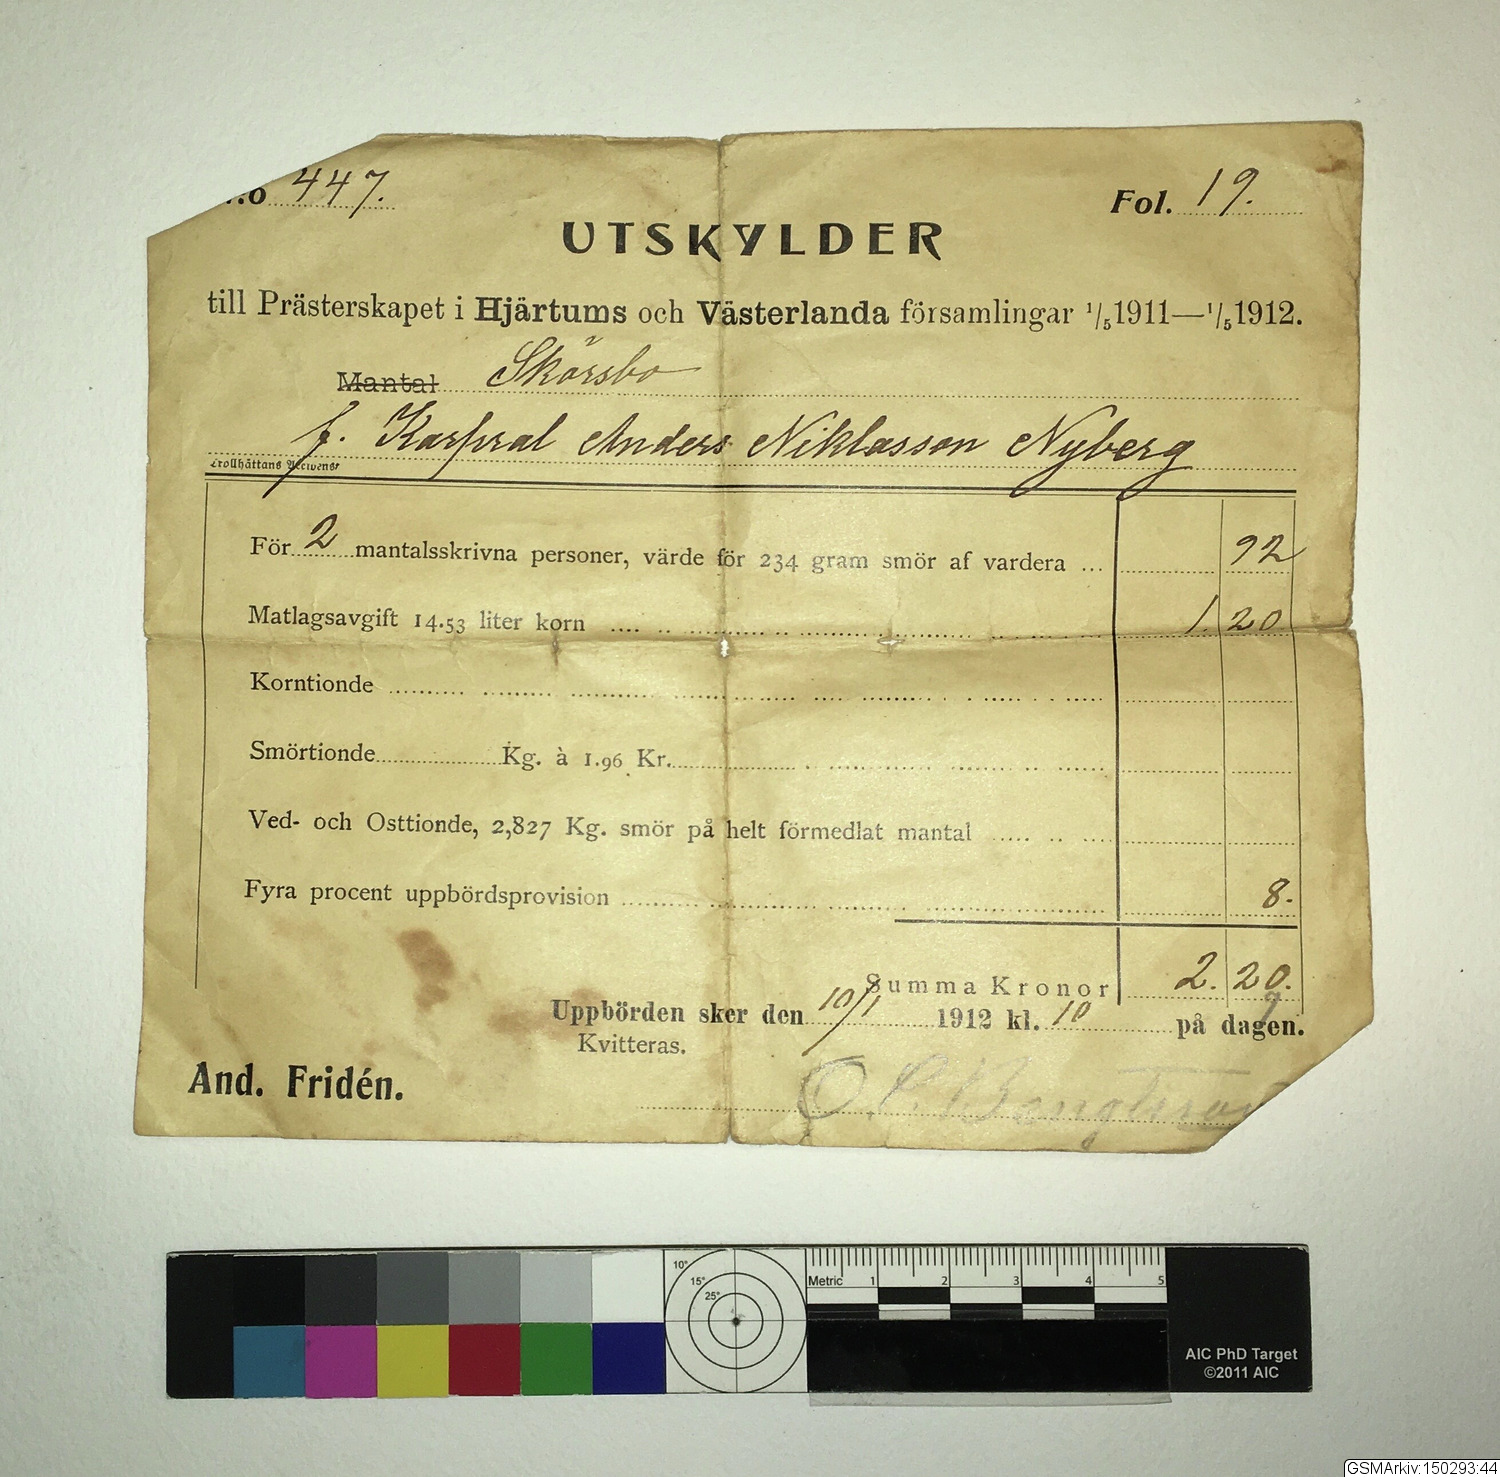 No 447. Fol. 19.
UTSKYLDER
till Prästerskapet i Hjärtums och Västerlanda församlingar 1/5 1911—1/5 1912.
Mantal Skörsbo
f. Karpral Anders Niklasson Nyberg
Trollhättans
För 2 mantalsskrivna personer, värde för 234 gram smör af vardera ... 92
Matlagsavgift 14.53 liter korn 1. 20
Korntionde
Smörtionde Kg. à 1.96 Kr.
Ved- och Osttionde, 2,827 Kg. smör på helt förmedlat mantal
Fyra procent uppbördsprovision 8.
Summa Kronor 2. 20.
Uppbörden sker den 10/1 1912 kl. 10 på dagen.
Kvitteras.
And. Fridén.
O. C. Bengtsson
10°
15°
25°
Metric 1 2 3 4 5
AIC PhD Target
©2011 AIC
GSMArkiv:150293:44